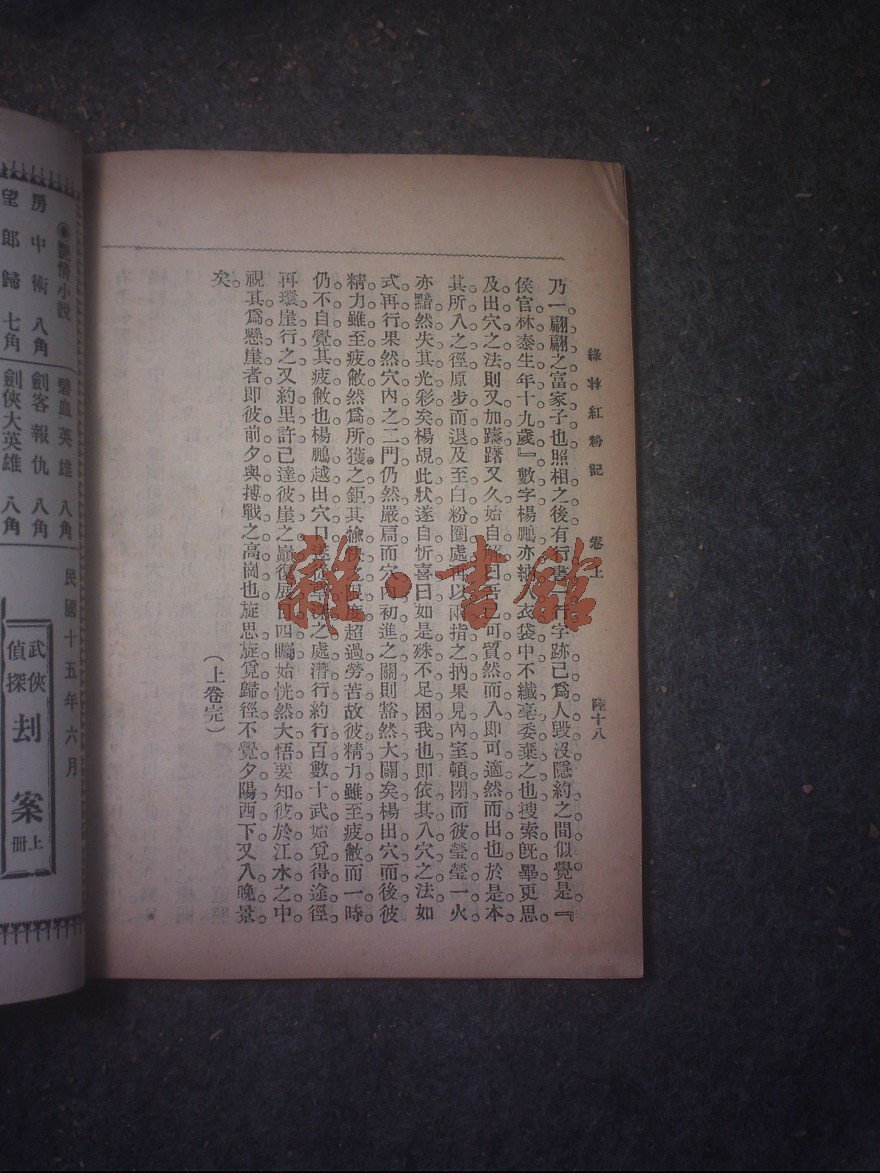 綠林紅粉記　卷上　陸十八
乃一翩翩之富家子也照相之後有行書一行字跡已爲人毀沒隱約之間似覺是『
侯官林泰生年十九歲』數字楊鵬亦納入衣袋中不纖毫委棄之也搜索旣畢更思
及出穴之法則又加躊躇又久始自解曰吾已可貿然而入即可適然而出也於是本
其所入之徑原步而退及至白粉圈處再以兩指之抐果見內室頓閉而彼瑩瑩一火
亦黯然失其光彩矣楊覩此狀遂自忻喜曰如是殊不足困我也即依其入穴之法如
式再行果然穴內之二門仍然嚴扃而穴內初進之關則豁然大闢矣楊出穴而後彼
精力雖至疲敝然爲所獲之鉅其愉快限度超過勞苦故彼精力雖至疲敝而一時
仍不自覺其疲敝也楊鵬越出穴口遂從草深之處潛行約行百數十武始覓得途徑
再環崖行之又約里許已達彼崖之巓復展目四矚始恍然大悟要知彼於江水之中
視其爲懸崖者即彼前夕與搏戰之高崗也旋思旋覓歸徑不覺夕陽西下又入晚景
矣
（上卷完）
雜·書館
民國十五年六月
◉艷情小說
房中術　八角
望郎歸　七角
碧血英雄　八角
劍客報仇　八角
劍俠大英雄　八角
武俠
偵探
刦案
上冊